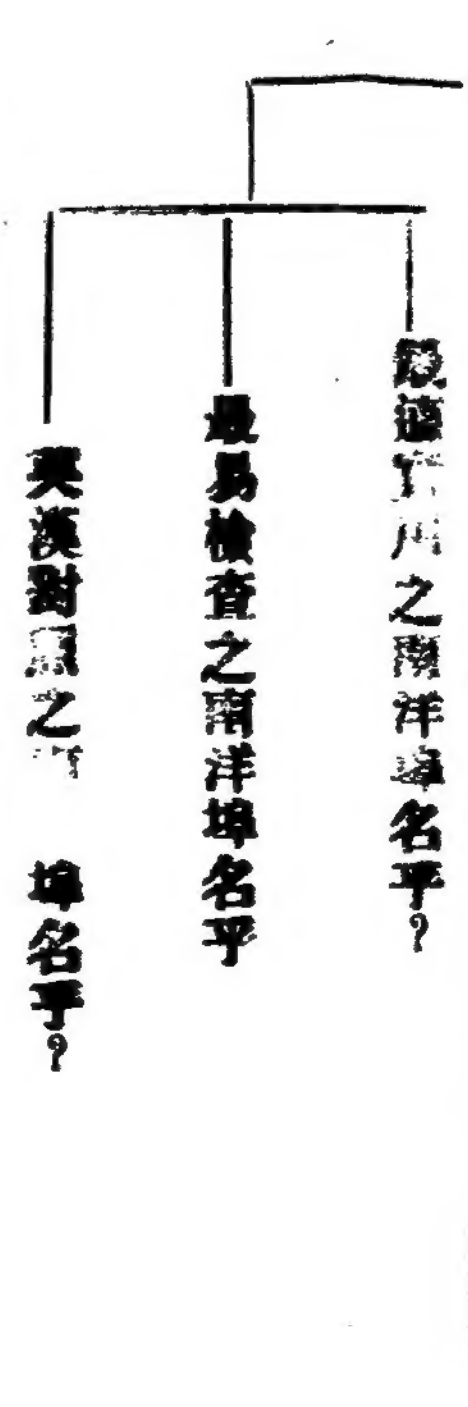 最適實用之南洋埠名乎？
最易檢查之南洋埠名乎
英漢對照之南 埠名乎？